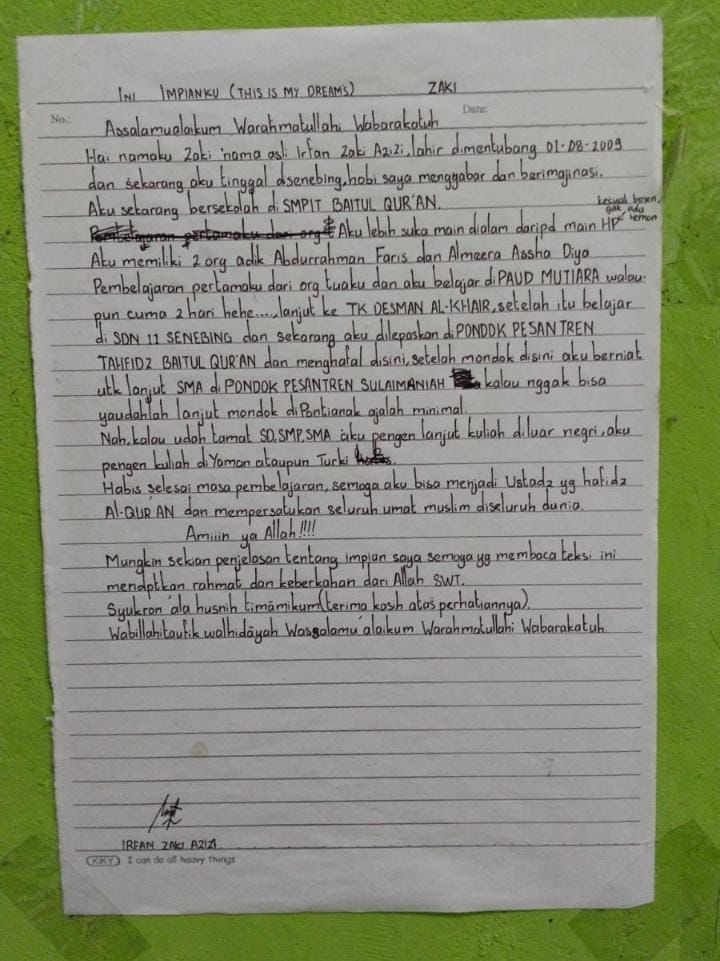 INI IMPIANKU (THIS IS MY DREAMS) ZAKI
No.: Date:
Assalamualaikum Warahmatullahi Wabarakatuh
Hai namaku Zaki nama asli Irfan Zaki Azizi, lahir dimentubang 01-08-2009
dan sekarang aku tinggal disenebing, hobi saya menggabar dan berimajinasi.
Aku sekarang bersekolah di SMPIT BAITUL QUR'AN.
kecuali bosen,
gak ada
temen
Pembelajaran pertamaku dari org t Aku lebih suka main dialam daripd main HP
Aku memiliki 2 org adik Abdurrahman Faris dan Almeera Assha Diya
Pembelajaran pertamaku dari org tuaku dan aku belajar di PAUD MUTIARA walau-
pun cuma 2 hari hehe...., lanjut ke TK DESMAN AL-KHAIR, setelah itu belajar
di SDN 11 SENEBING dan sekarang aku dilepaskan di PONDOK PESANTREN
TAHFIDZ BAITUL QUR'AN dan menghafal disini, setelah mondok disini aku berniat
utk lanjut SMA di PONDOK PESANTREN SULAIMANIAH kalau nggak bisa
yaudahlah lanjut mondok diPontianak ajalah minimal.
Nah, kalau udah tamat SD, SMP, SMA aku pengen lanjut kuliah diluar negri, aku
pengen kuliah di Yaman ataupun Turki
Habis selesai masa pembelajaran, semoga aku bisa menjadi Ustadz yg hafidz
Al-QUR'AN dan mempersatukan seluruh umat muslim diseluruh dunia.
Amiiin ya Allah!!!!
Mungkin sekian penjelasan tentang impian saya semoga yg membaca teksi ini
mendptkan rahmat dan keberkahan dari Allah SWT.
Syukron 'ala husnih timāmikum (terima kasih atas perhatiannya).
Wabillahitaufik walhidāyah Wassalamu'alaikum Warahmatullahi Wabarakatuh.
IRFAN ZAKI AZIZI
KKY I can do all heavy things